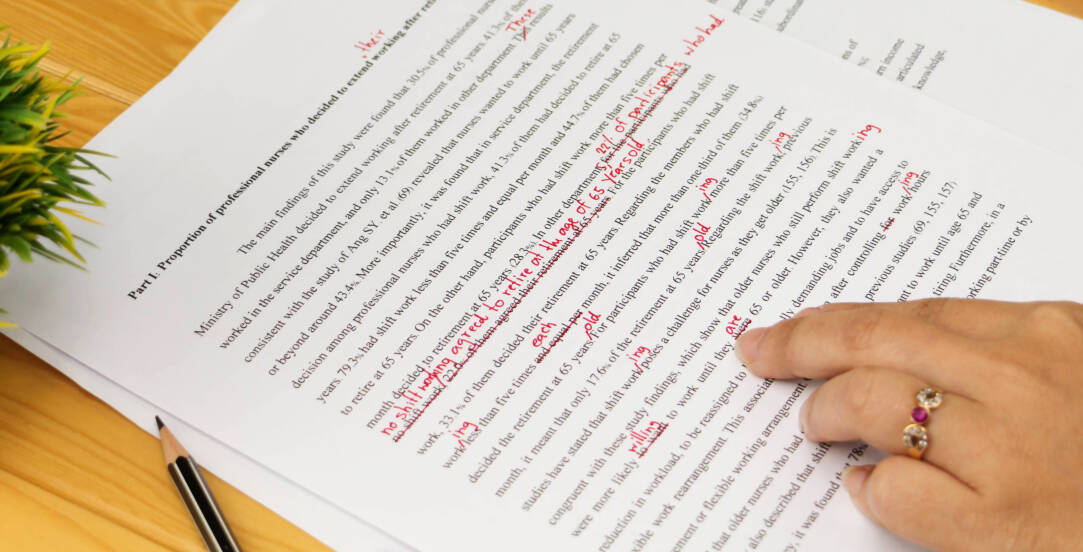 Part I. Proportion of professional nurses who decided to extend working after
their
The main findings of this study were found that 30.5% of professional
Ministry of Public Health decided to extend working after retirement at 65 years. 41.3% of them
worked in the service department, and only 13.1% of them worked in other department. results
These
consistent with the study of Ang SY et al. (69) revealed that nurses wanted to work until 65 years
or beyond around 43.4%. More importantly, it was found that in service department, the retirement
decision among professional nurses who had shift work, 41.3% of them had decided to retire at 65
years. 79.3% had shift work less than five times and equal per month and 44.7% of them had chosen
to retire at 65 years. On the other hand, participants who had shift work more than five times per
month decided to retirement at 65 years 28.3%. In other department, for the participants who had
22% of participants who had
no shift working agreed to retire at the age of 65 years old
no shift work, of them agreed their retirement at 65 years. For the participants who had shift
work, 33.1% of them decided their retirement at 65 years. Regarding the members who had shift
each
ing
work/less than five times and equal per month, it inferred that more than one third of them (34.8%)
old
ing
decided the retirement at 65 years/For participants who had shift work/more than five times per
month, it meant that only 17.6% of the retirement at 65 years/Regarding the shift work/previous
old
ing
ing
studies have stated that shift work/poses a challenge for nurses as they get older (155, 156). This is
congruent with these study findings, which show that older nurses who still perform shift working
willing
are
were more likely to want to work until they 65 or older. However, they also wanted a
reduction in workload, to be reassigned to demanding jobs and to have access to
ing
work rearrangement. This after controlling for work/hours
or flexible working arrangement previous studies (69, 155, 157)
that older nurses who had to work until age 65 and
also described that Furthermore, in a
it was found part-time or by
income
articulated
knowledge,